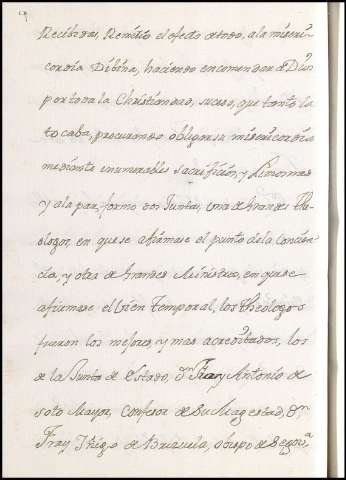 Recibidas, Remitio el efecto de todo, ala miseri
cordia Dibina, haciendo encomendar á Dios
por toda la Christiandad, suceso, que tanto la
tocaba, procurando obligar su misericordia
mediante enumerables sacrificios, y Limosnas
y ala par, formo dos Juntas, una de grandes The
ologos, en que se afirmase el punto de la Concien
cia, y otra de grandes Ministros, en que se
afirmase el bien Temporal, los Theologos
fueron los mejores, y mas acreditados, los
de la Junta de Estado, Dn Fray Antonio de
Soto Mayor, Confesor de Su Magestad, Dn
Fray Iñigo de Brizuela, obispo de Segovia